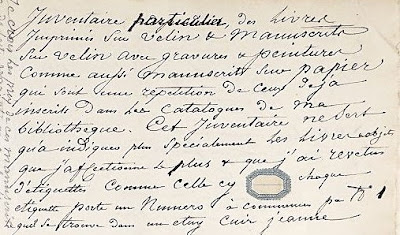 Inventaire particulier, des Livres
Imprimés sur velin & Manuscrits
sur velin avec gravures & peintures
Comme aussi Manuscrits sur papier
qui sont une répétition de ceux deja
inscrits dans les Catalogues de ma
bibliotheque. Cet Inventaire ne sert
qu'a indiquer plus spécialement les Livres objets
que j'affectionne le plus & que j'ai revetus
d'etiquettes Comme celle cy chaque
etiquette porte un Numero à commencer par No 1
Le qui se trouve dans un etuy cuir jeaune